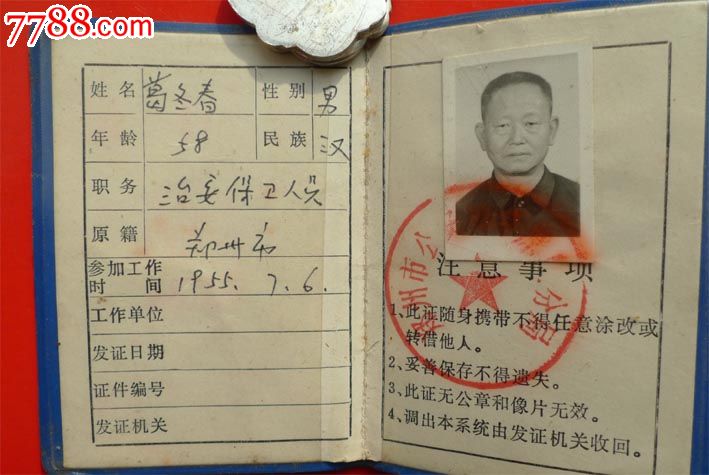 7788.com
姓名 葛冬春 性别 男
年龄 58 民族 汉
职务 治安保卫人员
原籍 郑州市
参加工作时间 1955.7.6.
工作单位
发证日期
证件编号
发证机关
郑州市公
分局
注意事项
1、此证随身携带不得任意涂改或
转借他人。
2、妥善保存不得遗失。
3、此证无公章和像片无效。
4、调出本系统由发证机关收回。